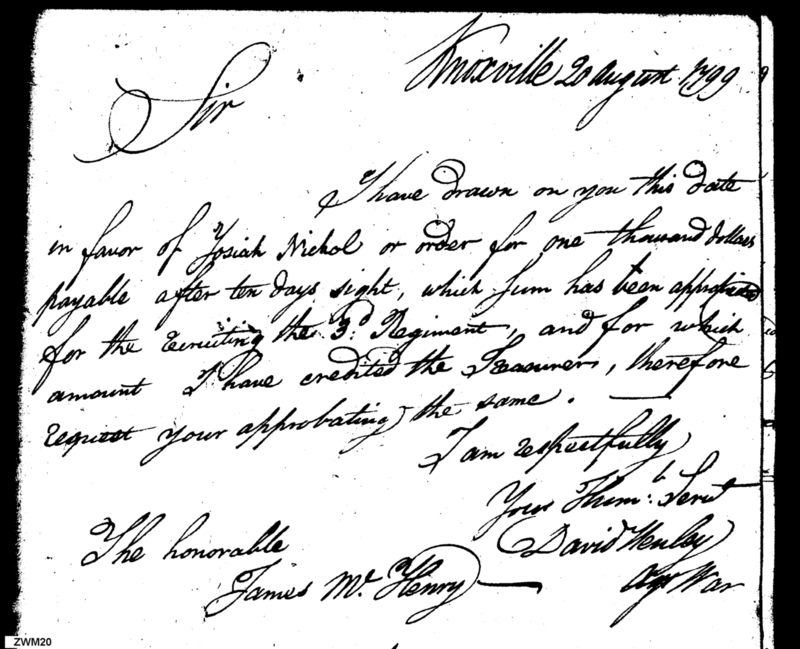 Knoxville 20 August 1799
Sir
I have drawn on you this date
in favor of Josiah Nichol or order for one thousand dollars
payable after ten days sight, which Sum has been
for the recruiting the 3d. Regiment, and for which
amount I have credited the Treasurer, therefore
request your approbating the same.
I am respectfully
Your Humb. Servt
The honorable
David Henley
James Mc. Henry
Agt War
ZWM20